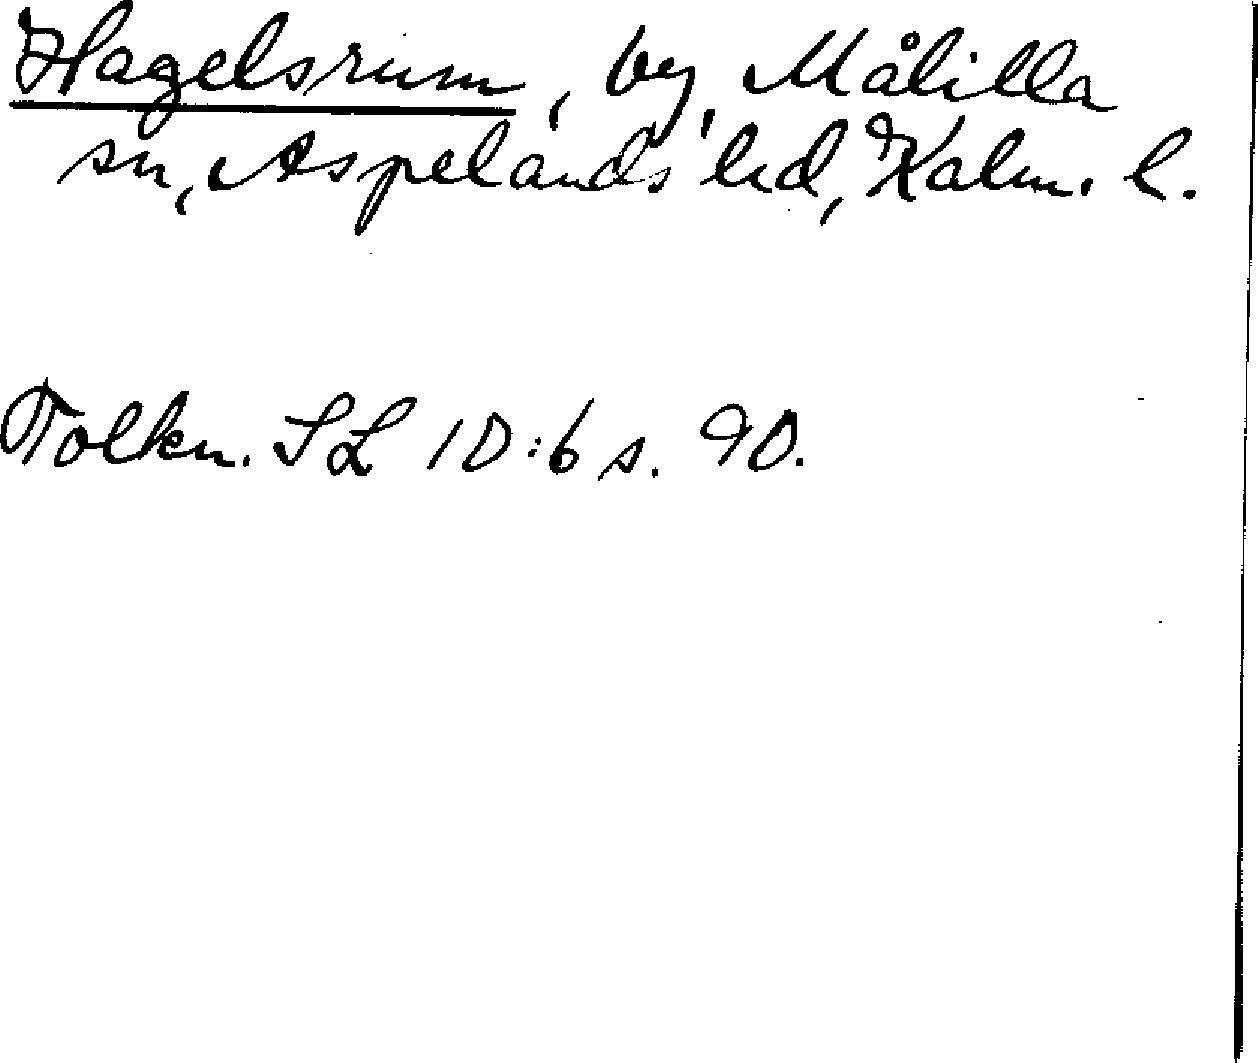 Hagelsrum, by, Målilla
sn, Aspelands hd, Kalm. l.
Tolkn. SL 10:6 s. 90.